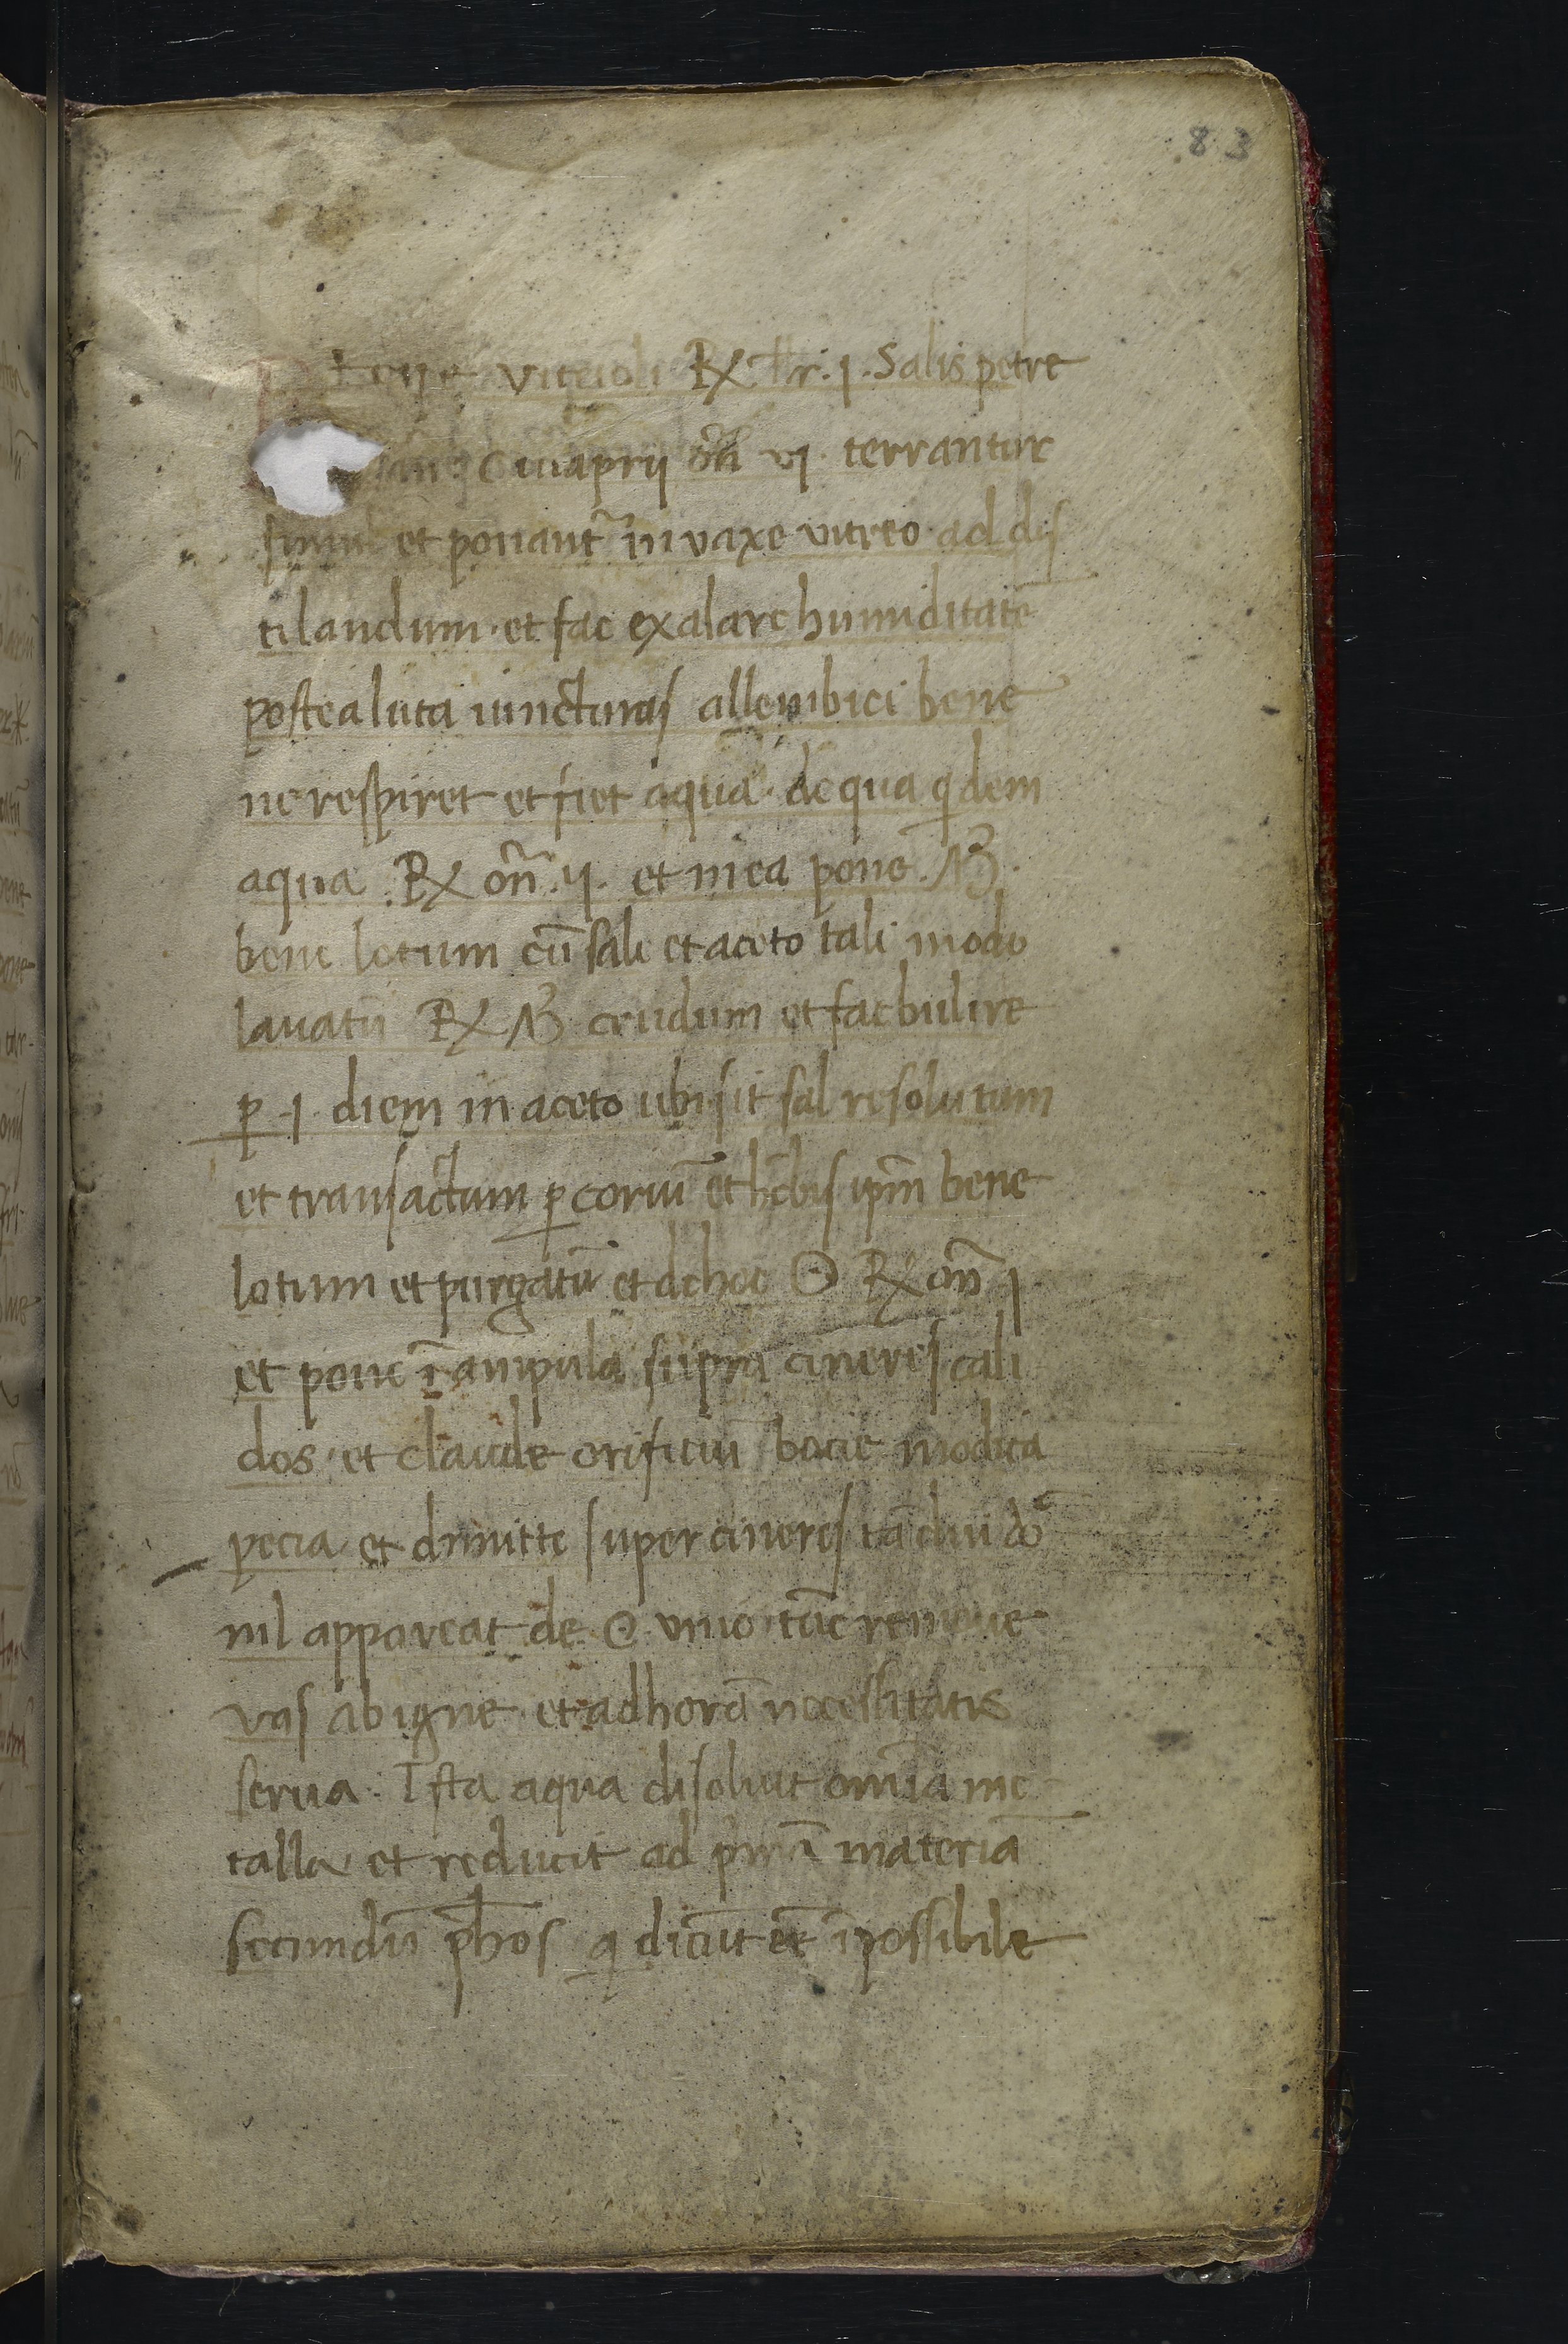 83
bene vitrioli ℞ lbr. j. Salis petre
Cinaprij oñ vj. terrantur
simul et ponant᷑ in vaxe vitreo ad dis
tilandum. et fac exalare humiditatē
postea luta iuncturas allembici bene
ne respiret et fiet aqua. de qua qͥdem
aqua ℞ oñ. ij. et in ea pone
bene lotum cū sale et aceto tali modo
lauatū ℞ crudum et fac bulire
ꝑ .j. diem in aceto ubi sit sal resolutum
et transactum ꝑ coriū et hēbis ip̄m bene
lotum et purgatū et de hoc ☉ ℞ oñ j
et pone ī ampula supra cineres cali
dos. et claude orifitiū bocie modica
pecia et dimitte super cineres tā diu dō
nil appareat de ☉ vīuo. tūc remoue
vas ab igne et ad horā necessitatis
serua. Ista aqua disoluit omīa me
talla et reducit ad pͥmā materiā
secundū ph̄os q dicūt eē īpossibile